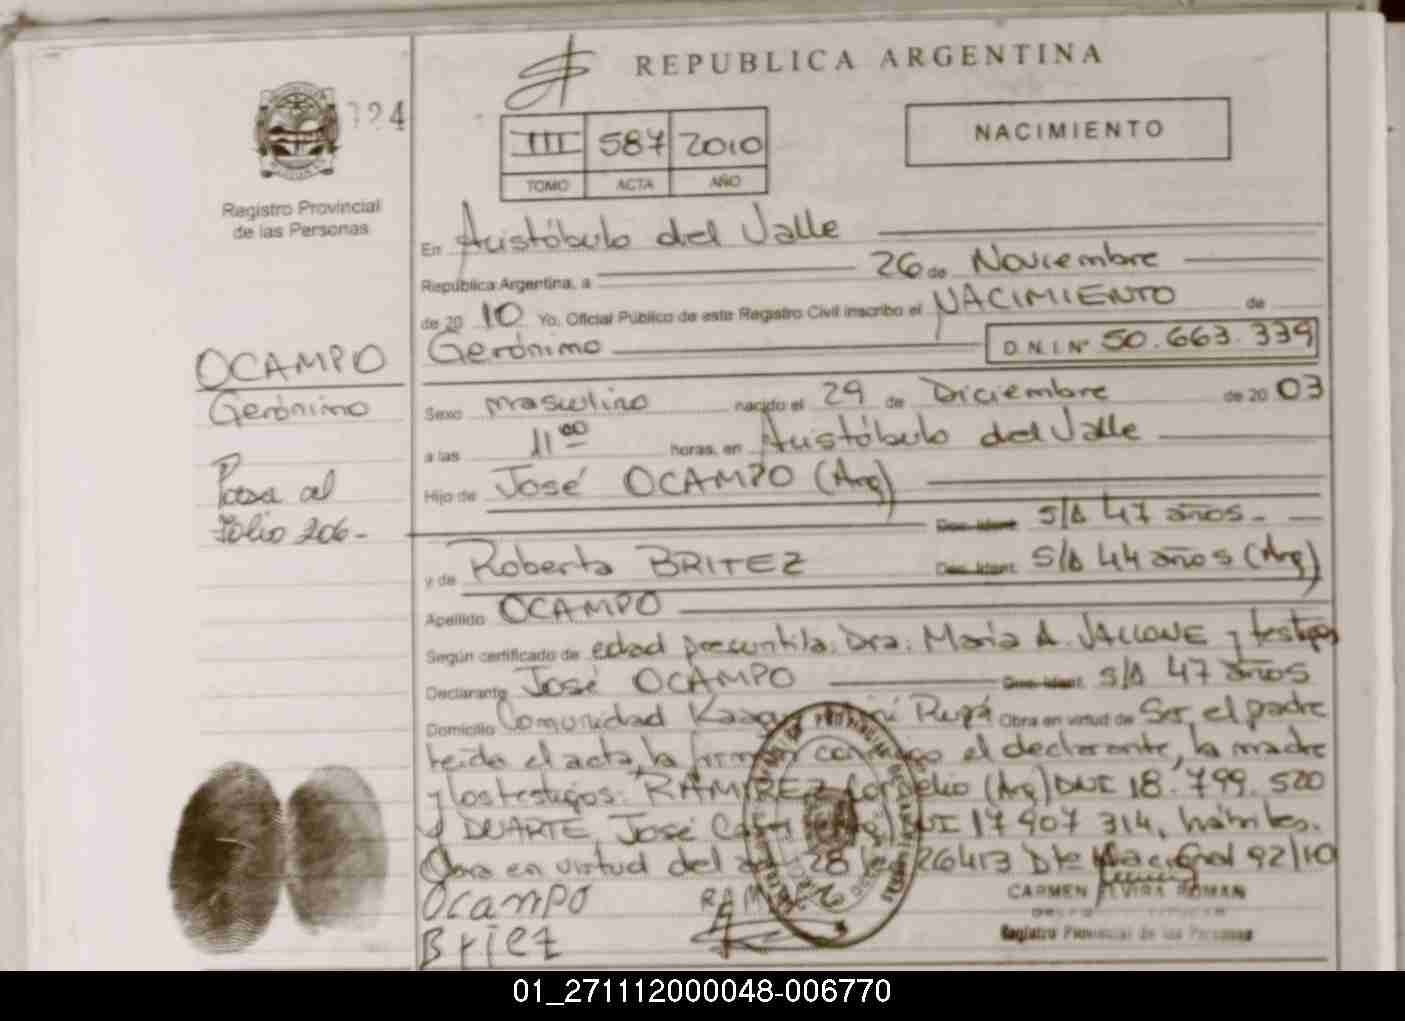 REPUBLICA ARGENTINA
124
III 587 2010
TOMO ACTA AÑO
NACIMIENTO
Registro Provincial
de las Personas
En Aristóbulo del Valle
República Argentina, a 26 de Noviembre
de 20 10 Yo, Oficial Público de este Registro Civil inscribo el NACIMIENTO de
Gerónimo D.N.I Nº 50.663.339
OCAMPO
Gerónimo
Pasa al
Folio 206-
Sexo masculino nacido el 29 de Diciembre de 20 03
a las 11 00 horas, en Aristóbulo del Valle
Hijo de José OCAMPO (Arg)
Doc. Ident. S/D 47 años.-
y de Roberta BRITEZ Doc. Ident. S/D 44 años (Arg)
Apellido OCAMPO
Según certificado de edad presuntiva: Dra. María A. JALLONE y testigos
Declarante José OCAMPO Doc. Ident. S/D 47 años
Domicilio Comunidad Obra en virtud de Ser el padre
leida el acta, la firman conmigo el declarante, la madre
y los testigos: RAMIREZ (Arg) DNI 18.799.520
y DUARTE, José DNI 17 907 314, hábiles.
Obra en virtud del 28 26413 Dto Nacional 92/10
Ocampo
Briez
CARMEN ELVIRA ROMAN
Registro Provincial de las Personas
01_271112000048-006770